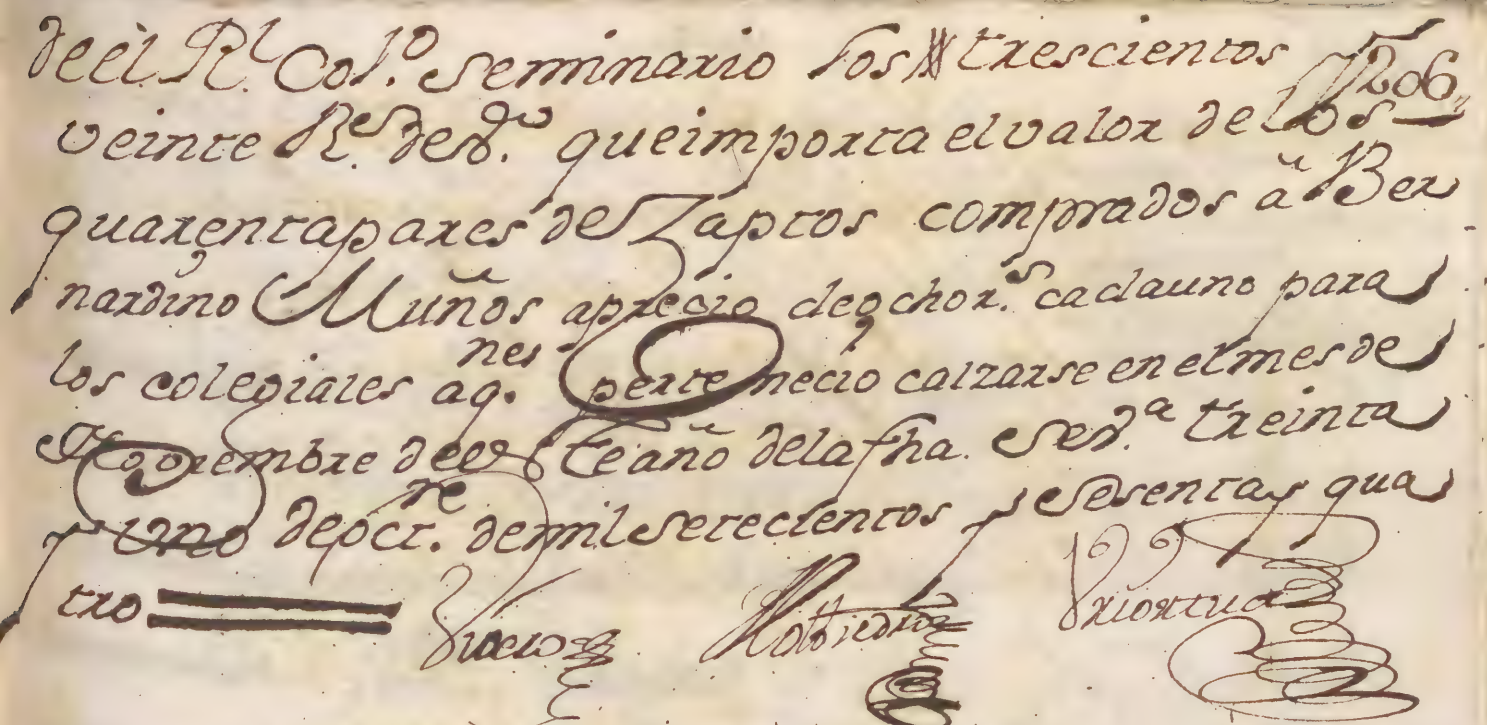 de èl Rl. Colo. Seminario los trescientos
206
veinte Rs. de vo. que importa el valor de los
quarenta pares de Zaptos comprados a Ber
nardino Muños a precio de ocho rs. cada uno para
los colegiales a q.nes pertenecio calzarse en el mes de
Noviembre de este año de la fha. Seva. treinta
y uno de octre. de mil setecientos y sesenta y qua
tro